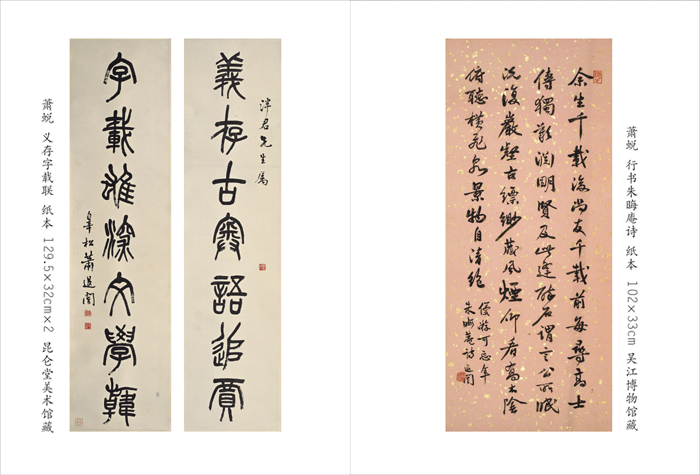 余生千載後尚友千載前每尋高士
傳獨歎淵明賢及此逢醉石謂言公所眠
況復巖壑古縹緲藏風煙仰看喬木陰
俯聽橫飛泉景物自清絕
優游可忘年
朱晦菴詩退闇
萧蜕 行书朱晦庵诗 纸本 102×33cm 吴江博物馆藏
君先生屬
義存古奧語追賈
字載雄深文學韓
松蕭退闇
萧蜕 义存字载联 纸本 129.5×32cm×2 昆仑堂美术馆藏